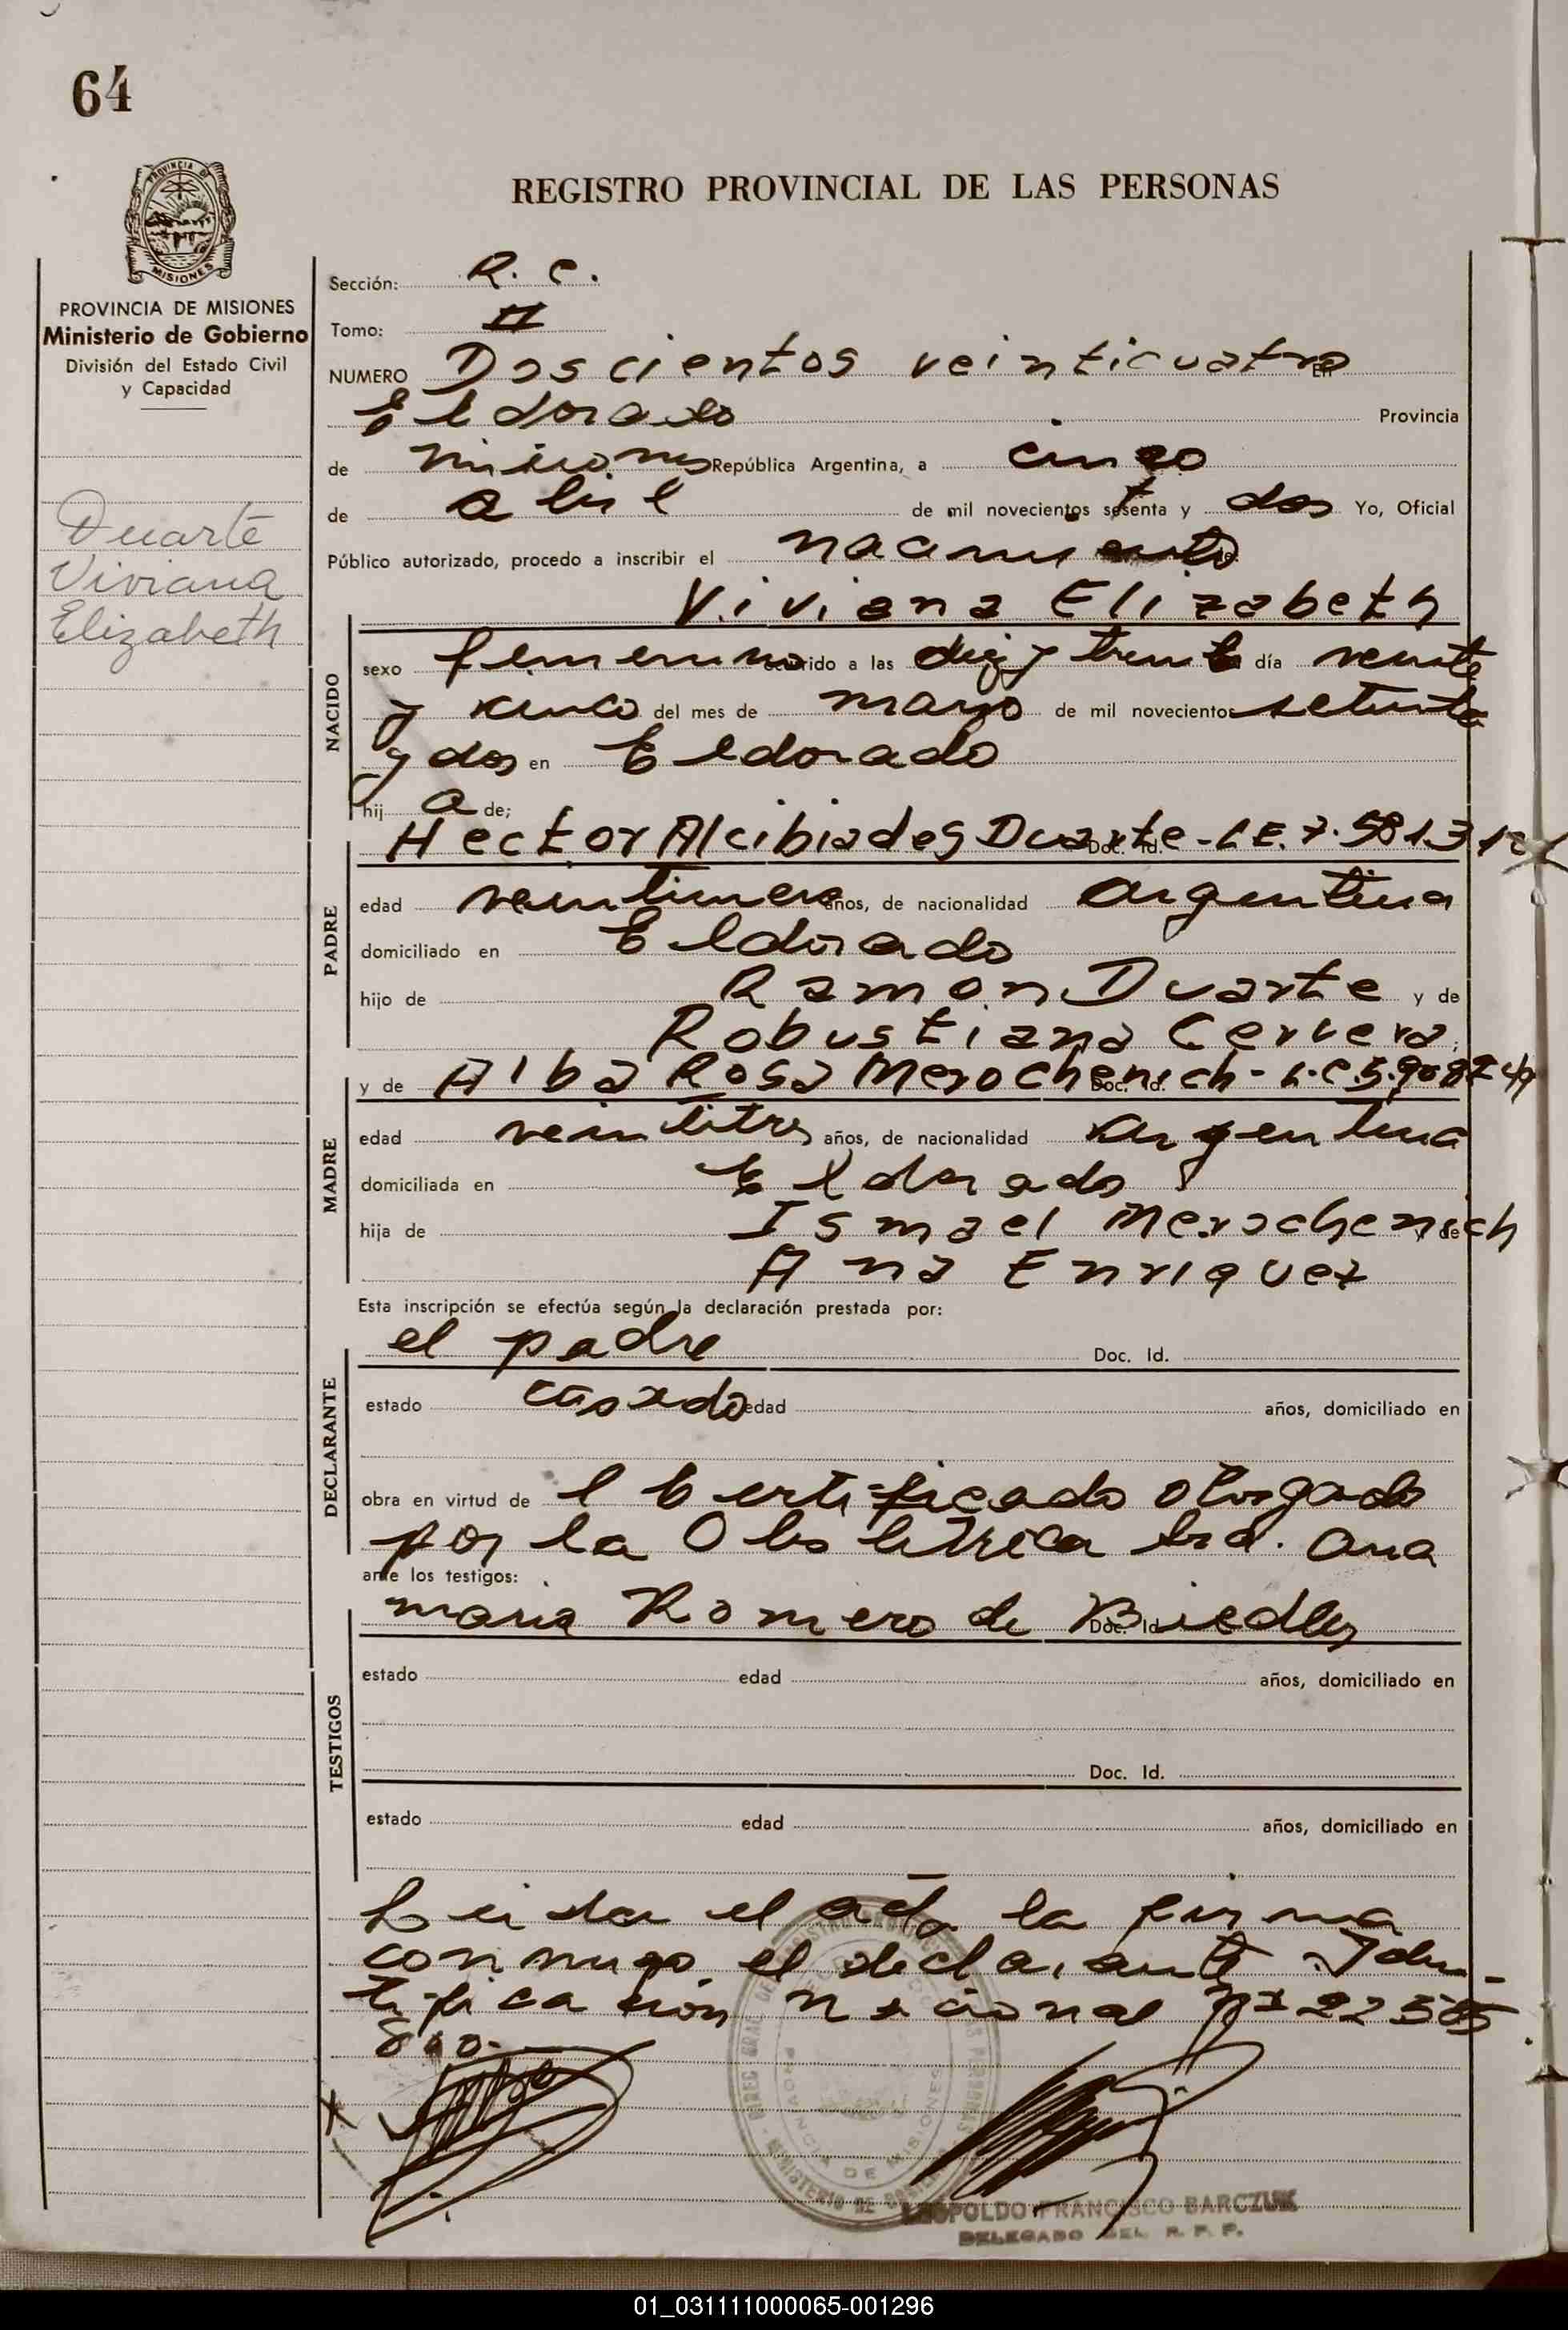 64
PROVINCIA DE
MISIONES
REGISTRO PROVINCIAL DE LAS PERSONAS
PROVINCIA DE MISIONES
Ministerio de Gobierno
División del Estado Civil
y Capacidad
Duarte
Viviana
Elizabeth
Sección: R. C.
Tomo: II
NUMERO Doscientos veinticuatro En
Eldorado Provincia
de Misiones República Argentina, a cinco
de abril de mil novecientos setenta y dos Yo, Oficial
Público autorizado, procedo a inscribir el nacimiento
Viviana Elizabeth
NACIDO
sexo femenino ocurrido a las diez y treinta día veinte
y cinco del mes de marzo de mil novecientos setenta
y dos en Eldorado
hij a de;
PADRE
Hector Alcibiades Duarte - L E. 7. 5813 Doc. Id.
edad años, de nacionalidad argentina
domiciliado en Eldorado
hijo de Ramon Duarte y de
Robustiana Cervera
MADRE
y de Alba Rosa Merochenich - L. C. 5. Doc. Id.
edad veintitres años, de nacionalidad argentina
domiciliada en Eldorado
hija de Ismael Merochenich y de
Ana Enriquez
Esta inscripción se efectúa según la declaración prestada por:
DECLARANTE
el padre Doc. Id.
estado casado edad años, domiciliado en
obra en virtud de l Certificado otorgado
por la Obstetrica Sra. Ana
ante los testigos:
TESTIGOS
Maria Romero de Doc. Id.
estado edad años, domiciliado en
Doc. Id.
estado edad años, domiciliado en
Leida el acta la firma
conmigo el declarante Iden-
tificacion nacional Nº 22 505
800.
PROVINCIA DE MISIONES
LEOPOLDO FRANCISCO BARCZUK
DELEGADO DEL R. P. P.
01_031111000065-001296